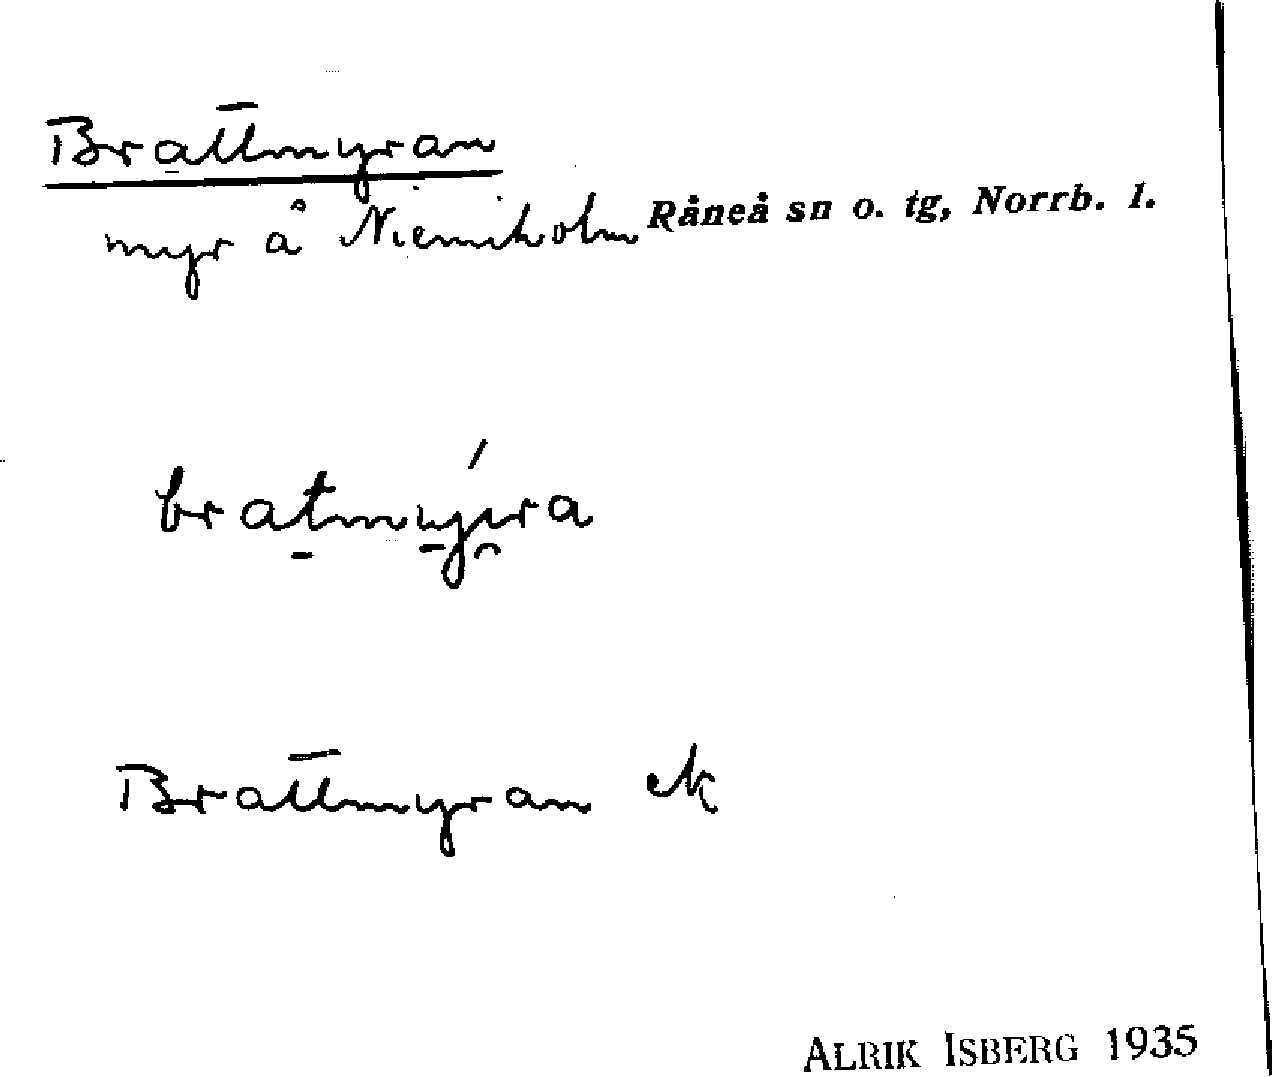 Brattmyran
myr å Niemiholm Råneå sn o. tg, Norrb. l.
bratmyı́ra
Brattmyran ek
ALRIK ISBERG 1935